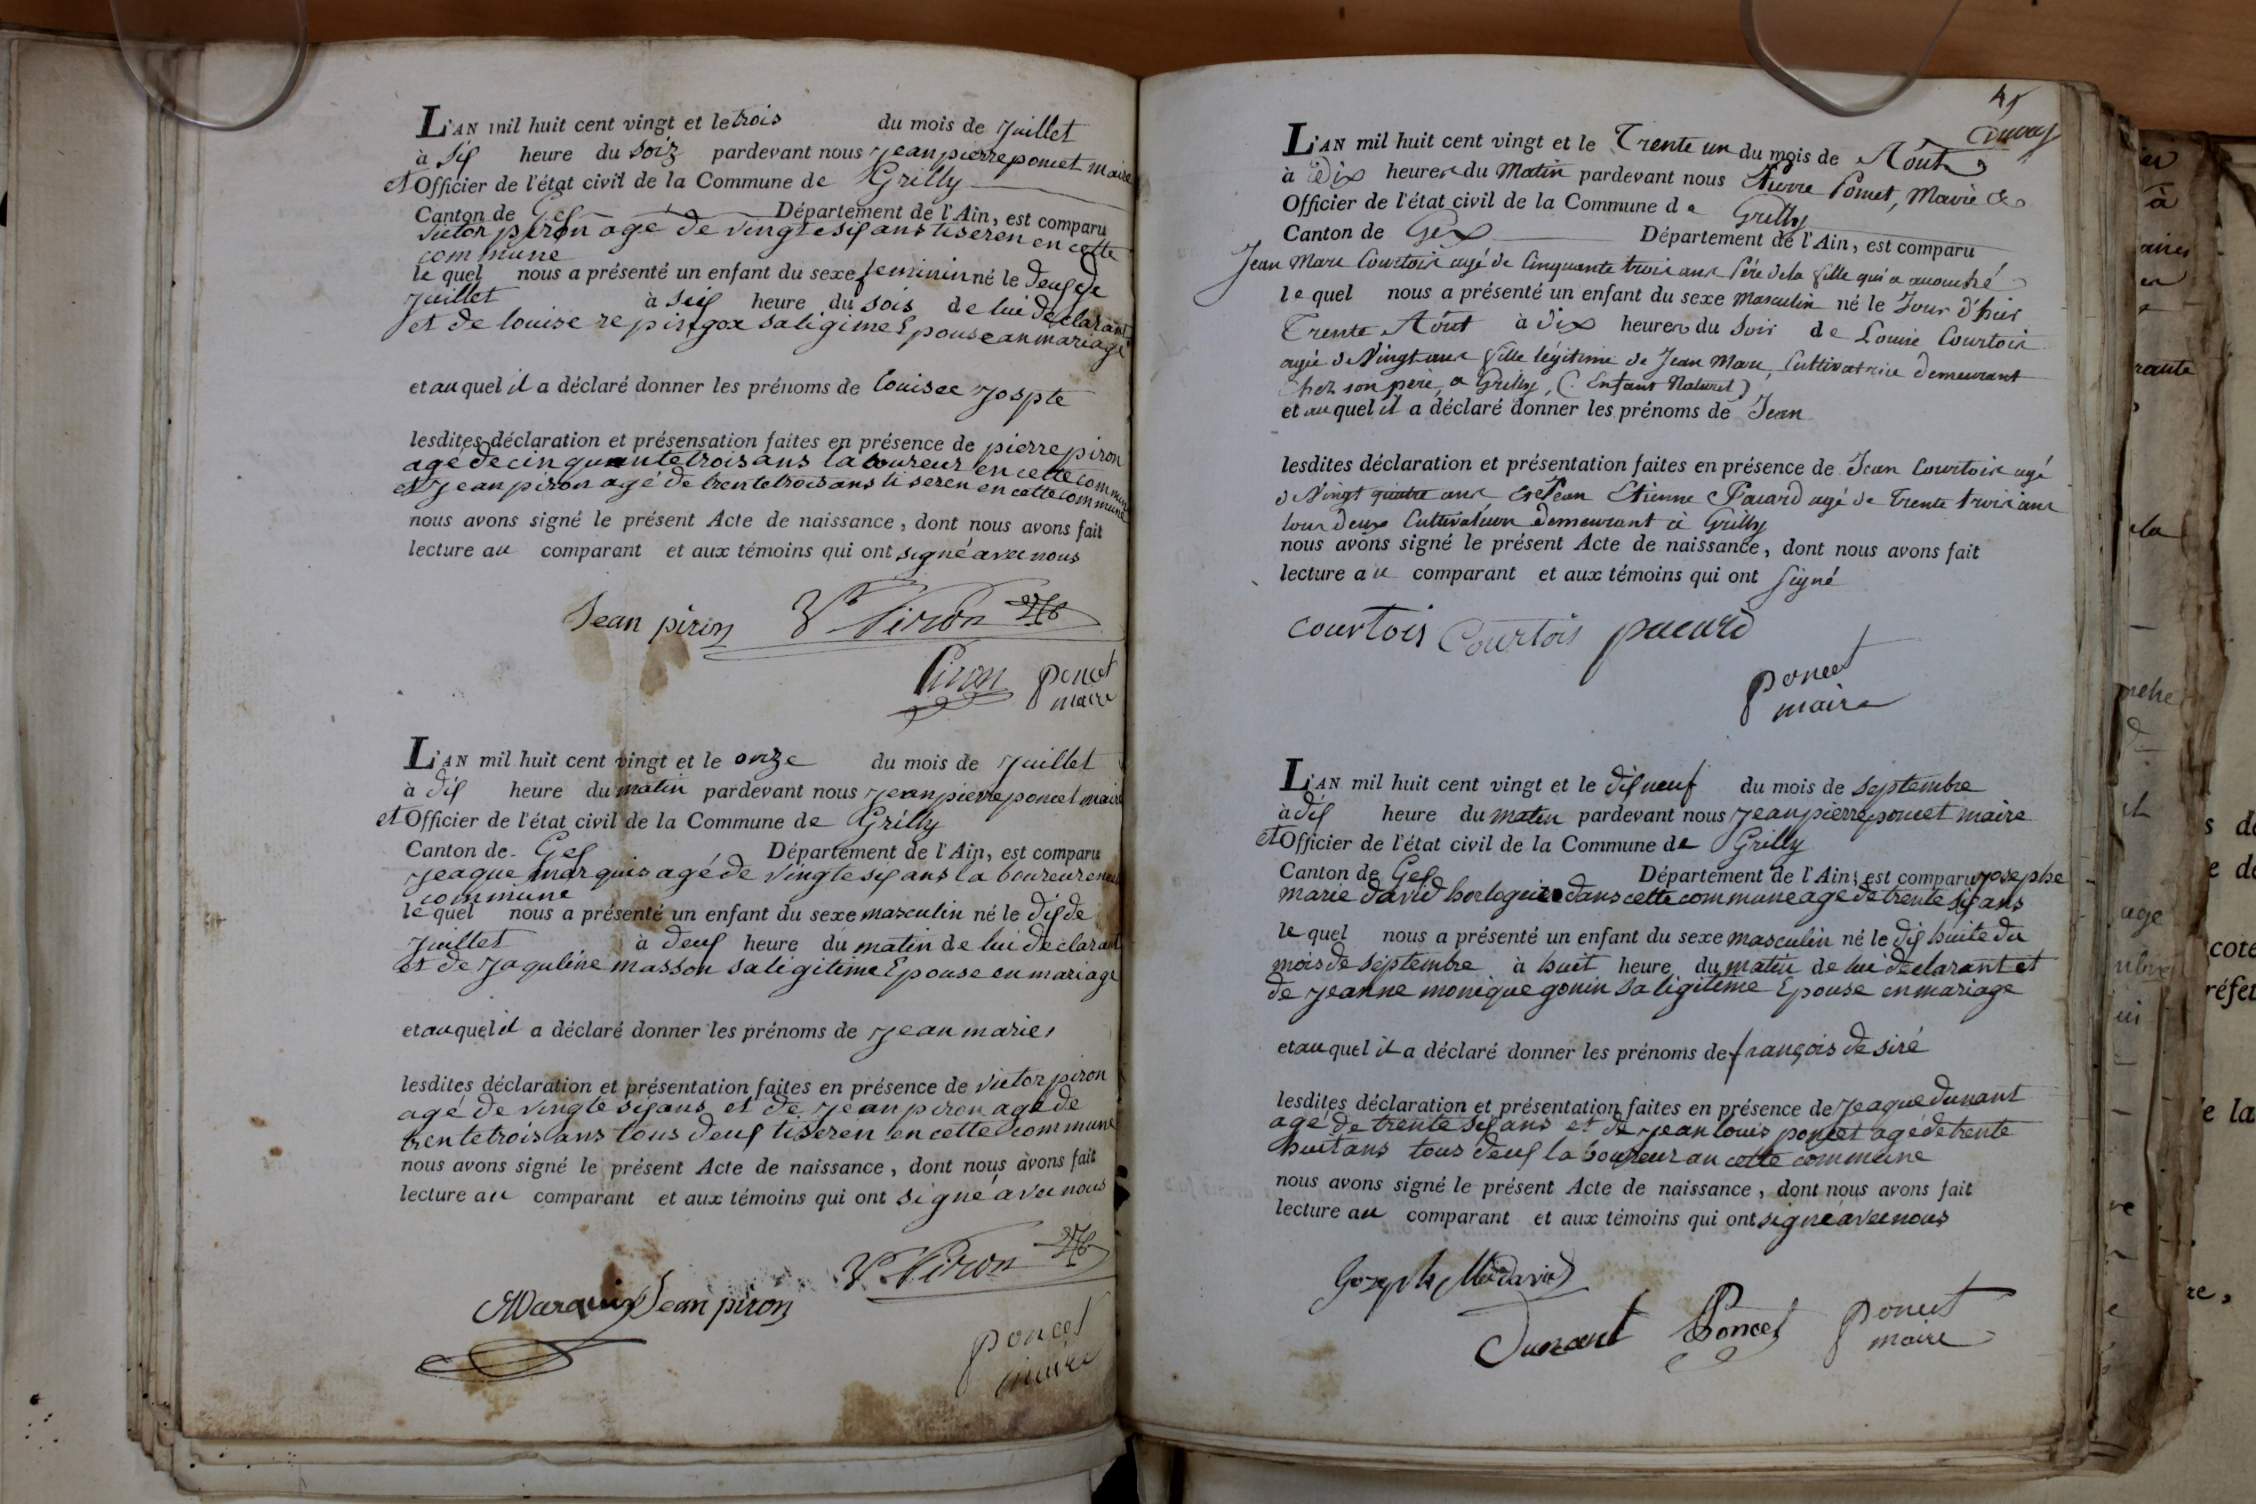 L'AN mil huit cent vingt et le trois du mois de juillet
à sis heure du soiz pardevant nous jean pierre poncet maire
et Officier de l'état civil de la Commune de Grilly
Canton de Gex Département de l'Ain, est comparu
victor piron agé de vingt e sis ans tiseren en cette
commune
le quel nous a présenté un enfant du sexe feminin né le deus de
juillet à sis heure du sois de lui declarant
et de louise repingox sa ligime Epouse an mariage
et au quel il a déclaré donner les prénoms de louisee jospte
lesdites déclaration et présensation faites en présence de pierre piron
agé de cinquante trois ans laboureur en cette commune
et jean piron agé de trente trois ans tiseren en cette commune
nous avons signé le présent Acte de naissance, dont nous avons fait
lecture au comparant et aux témoins qui ont signé avec nous
Jean piron Vr Piron
Piron poncet
maire
L'AN mil huit cent vingt et le onze du mois de juillet
à dis heure du matin pardevant nous jean pierre poncet maire
et Officier de l'état civil de la Commune de Grilly
Canton de Gex Département de l'Ain, est comparu
jeaque marquis agé de vingt e sis ans laboureur en cette
commune
le quel nous a présenté un enfant du sexe masculin né le dis de
juillet à deus heure du matin de lui declarant
et de jaquline masson sa ligitime Epouse en mariage
et au quel il a déclaré donner les prénoms de jean marie
lesdites déclaration et présentation faites en présence de victor piron
agé de vingt e sis ans et de jean piron agé de
trente trois ans tous deus tiseren en cette commune
nous avons signé le présent Acte de naissance, dont nous avons fait
lecture au comparant et aux témoins qui ont signé avec nous
Vr Piron
Marquis Jean piron
poncet
maire
45
L'AN mil huit cent vingt et le Trente un du mois de Aôut
à Dix heures du Matin pardevant nous Pierre Poncet, Maire &
Officier de l'état civil de la Commune de Grilly
Canton de Gex Département de l'Ain, est comparu
Jean Marc Courtois agé de Cinquante trois ans Pére de la fille qui a accouché
le quel nous a présenté un enfant du sexe Masculin né le Jour d'hier
Trente Aôut à dix heures du Soir de Louise Courtois
agée de Vingt ans fille légitime de Jean Marc, Cultivatrice demeurant
Chez son père, a Grilly, (Enfant Naturel)
et au quel il a déclaré donner les prénoms de Jean
lesdites déclaration et présentation faites en présence de Jean Courtois agé
de Vingt quatre ans & Jean Etienne Pacard agé de Trente trois ans
tous deux Cultivateurs demeurant à Grilly
nous avons signé le présent Acte de naissance, dont nous avons fait
lecture au comparant et aux témoins qui ont signé
Courtois Courtois pacard
poncet
maire
L'AN mil huit cent vingt et le dis neuf du mois de septembre
à dis heure du matin pardevant nous jean pierre poncet maire
et Officier de l'état civil de la Commune de Grilly
Canton de Gex Département de l'Ain, est comparu josephe
marie david horloguier dans cette commune agé de trente sis ans
le quel nous a présenté un enfant du sexe masculin né le dis huite du
mois de septembre à huit heure du matin de lui declarant et
de jeanne monique gonin sa ligitime Epouse en mariage
et au quel il a déclaré donner les prénoms de françois de siré
lesdites déclaration et présentation faites en présence de jeaque dunant
agé de trente sis ans et de jean louis poncet agé de trente
huit ans tous deus laboureur an cette commune
nous avons signé le présent Acte de naissance, dont nous avons fait
lecture au comparant et aux témoins qui ont signé avec nous
Joseph Mie david
Dunant Poncet poncet
maire